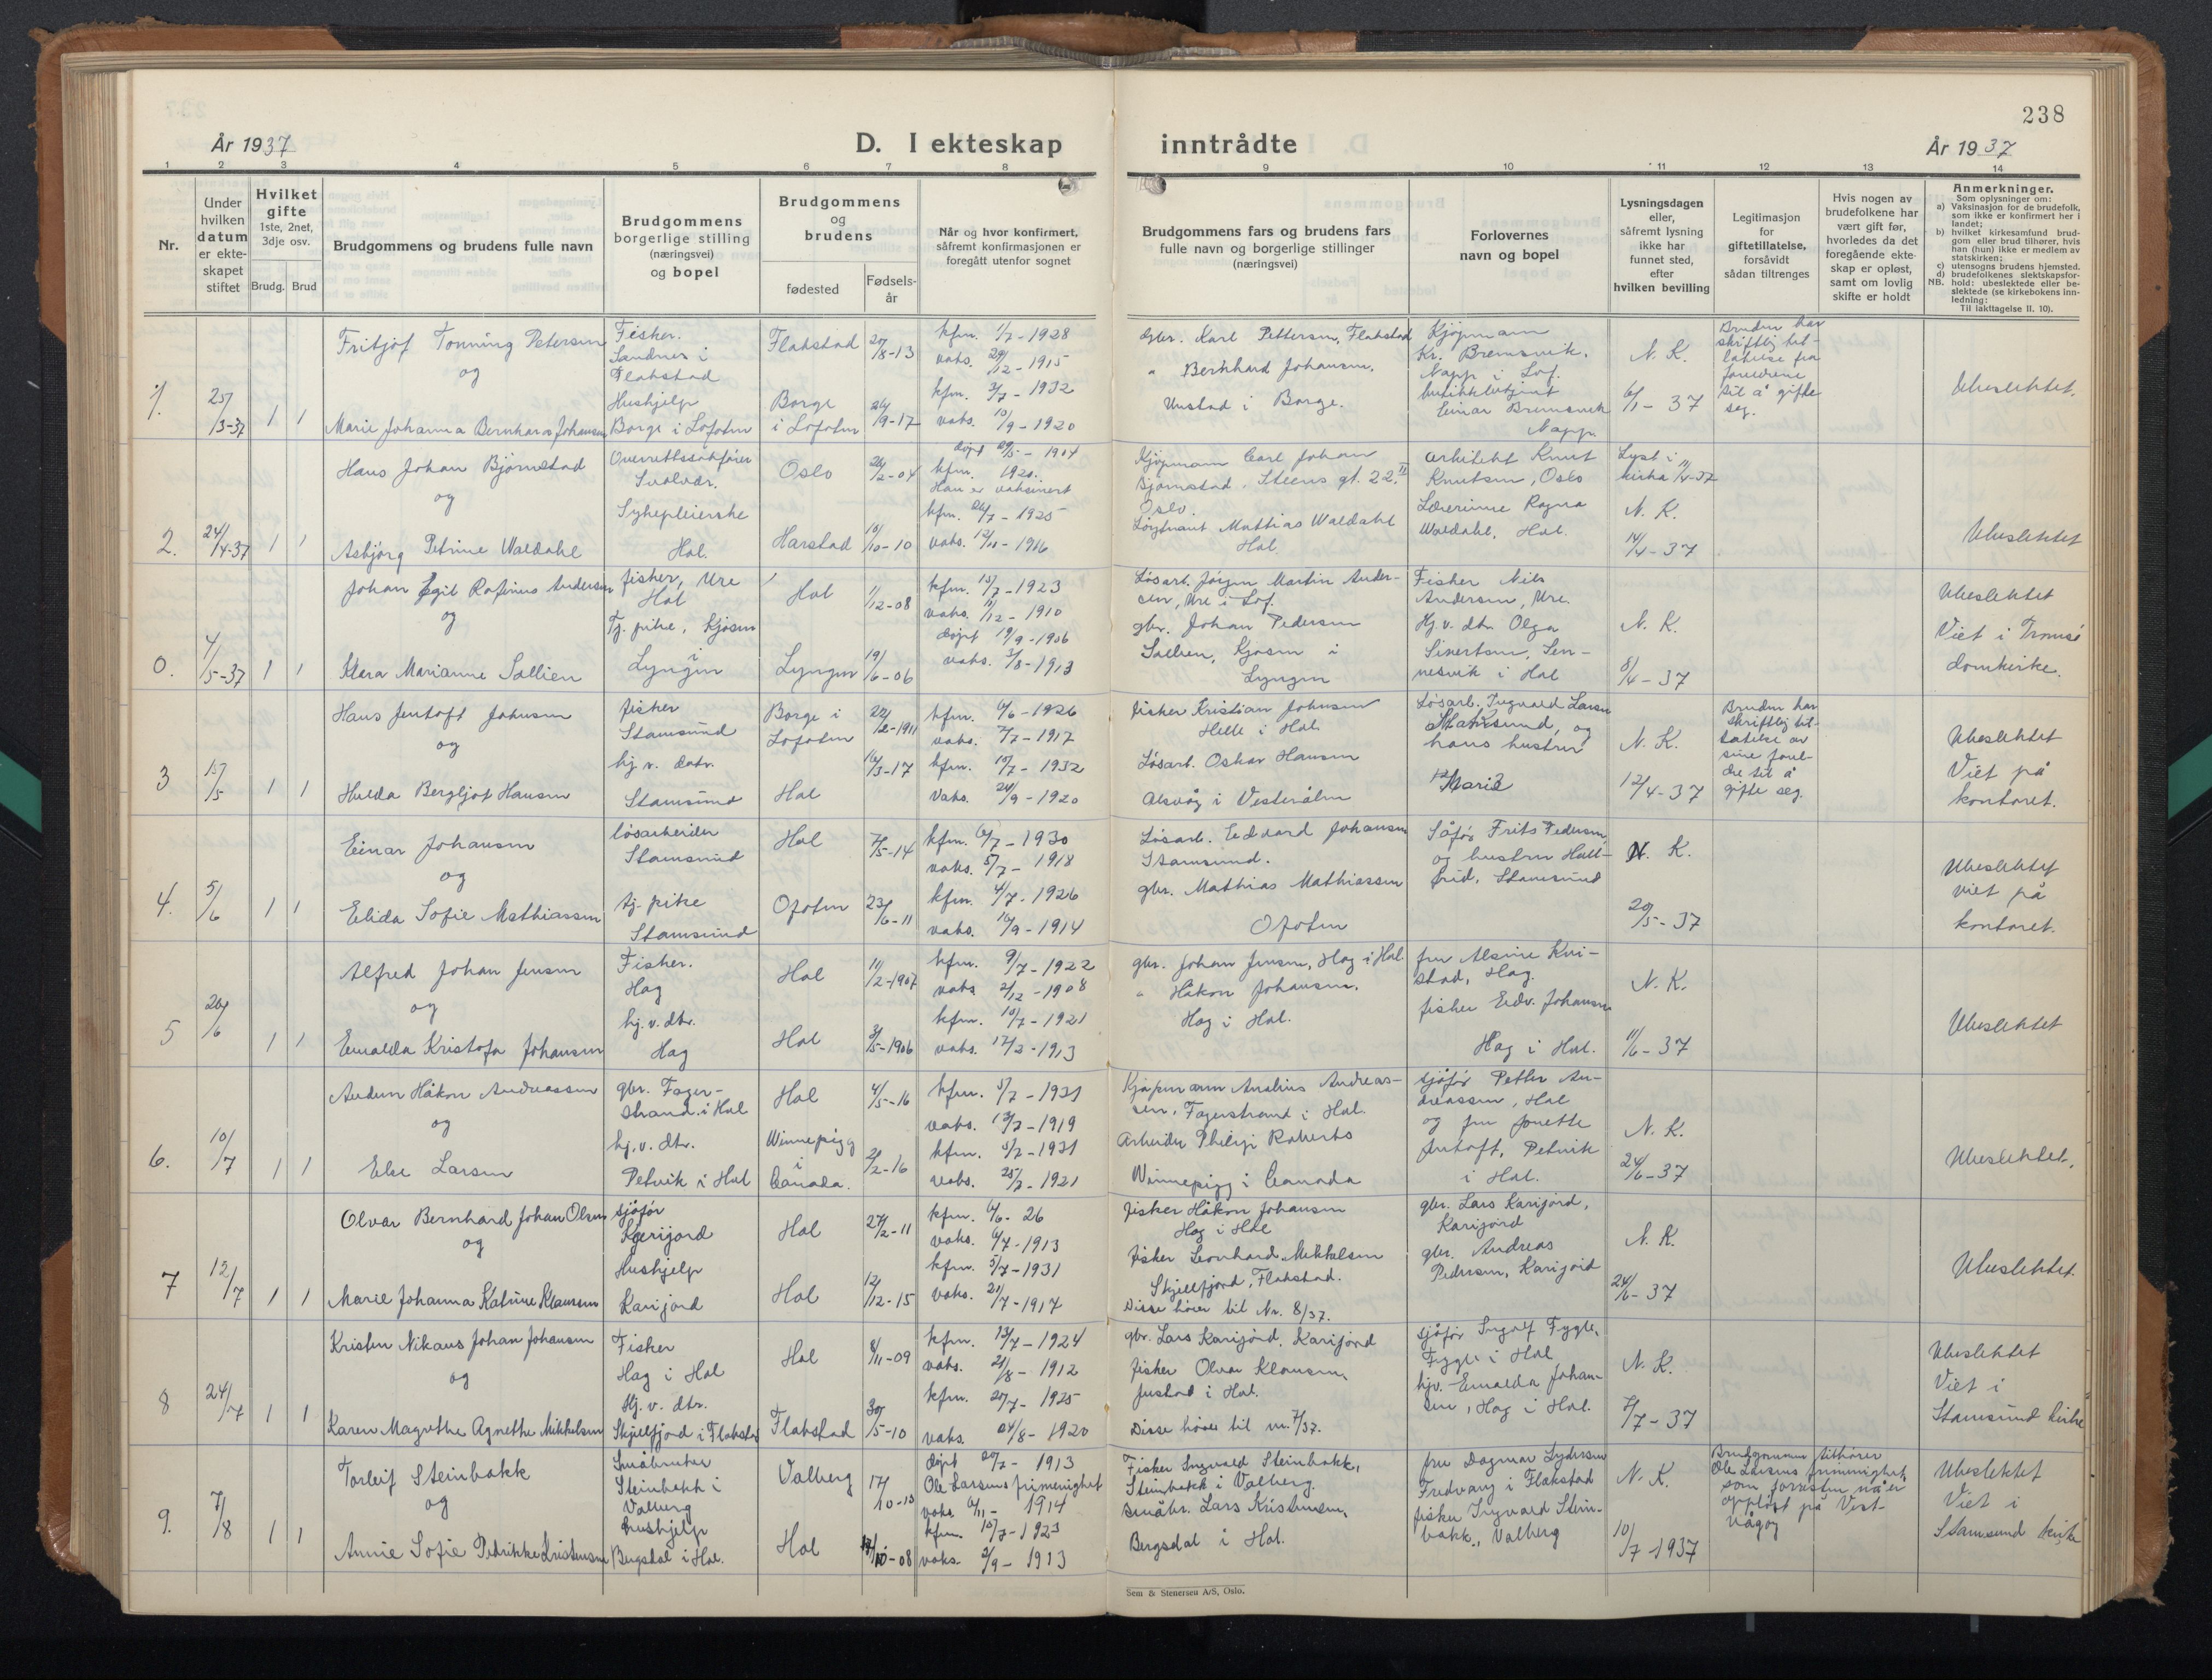 238
År 1937
D. I ekteskap
inntrådte
År 1937
1 2 3 4 5 6 7 8 9 10 11 12 13 14
Nr.
Under
hvilken
datum
er ekte-
skapet
stiftet
Hvilket
gifte
1ste, 2net,
3dje osv.
Brudg. Brud
Brudgommens og brudens fulle navn
Brudgommens
borgerlige stilling
(næringsvei)
og bopel
Brudgommens
og
brudens
fødested
Fødsels-
år
Når og hvor konfirmert,
såfremt konfirmasjonen er
foregått utenfor sognet
Brudgommens fars og brudens fars
fulle navn og borgerlige stillinger
(næringsvei)
Forlovernes
navn og bopel
Lysningsdagen
eller,
såfremt lysning
ikke har
funnet sted,
efter
hvilken bevilling
Legitimasjon
for
giftetillatelse,
forsåvidt
sådan tiltrenges
Hvis nogen av
brudefolkene har
vært gift før,
hvorledes da det
foregående ekte-
skap er opløst,
samt om lovlig
skifte er holdt
Anmerkninger.
Som oplysninger om:
a) Vaksinasjon for de brudefolk,
som ikke er konfirmert her i
landet;
b) hvilket kirkesamfund brud-
gom eller brud tilhører, hvis
han (hun) ikke er medlem av
statskirken;
c) utensogns brudens hjemsted.
d) brudefolkenes slektskapsfor-
NB. hold: ubeslektede eller be-
slektede (se kirkebokens inn-
ledning:
Til iakttagelse II. 10).
1. 25/3-37 1 1
Fritjof Tonning Petersen
og
Marie Johanna Bernhara Johansen
Fisker.
Sandnes i
Flakstad
Hushjelp
Borge i Lofoten
Flakstad 27/8-13
Borge
i Lofoten 26/9-17
kfm. 1/7-1928
vaks. 29/12-1915
kfm. 3/7-1932
vaks. 10/9-1920
gbr. Karl Pettersen, Flakstad
" Bernhard Johansen.
Unstad i Borge.
Kjøpmann
Kr. Bremsvik.
Napp i Lof.
butikkbetjent
Einar Bremsvik
Napp.
N. K.
6/1-37
Bruden har
skriftlig til-
latelse fra
foreldrene
til å gifte
seg.
Ubeslektet.
2. 24/4-37 1 1
Hans Johan Bjørnstad
og
Asbjørg Petrine Waldahl
Overrettssakfører
Svolvær.
Sykepleierske
Hol.
Oslo 26/2-04
Harstad 10/10-10
døpt 29/5-1904
kfm. 1920.
Han er vaksinert
kfm. 26/7-1925
vaks. 12/11-1916
Kjøpmann Carl Johan
Bjørnstad. Steens gt. 22 II
Oslo.
Løytnant Mathias Waldahl
Hol.
arkitekt Knut
Knutsen, Oslo
Lærerinne Ragna
Waldahl, Hol.
Lyst i
kirka 11/4-37
N. K.
14/4-37
Ubeslektet
0. 4/5-37 1 1
Johan Egil Rafinus Andersen
og
Klara Marianne Sollien
fisker, Ure
Hol
Tj. pike, Kjosen
i
Lyngen
Hol 1/12-08
Lyngen 19/6-06
kfm. 15/7-1923
vaks. 11/12-1910
døpt 19/9-1906
vaks. 3/8-1913
Løsarb. Jørgen Martin Ander-
sen, Ure i Lof.
gbr. Johan Pedersen
Sollien, Kjosen i
Lyngen
Fisker Nils
Andersen, Ure.
Hj. v. dtr. Olga
Sivertsen, Sen-
nesvik i Hol
N. K.
8/4-37
Ubeslektet
Viet i Tromsø
domkirke.
3 15/5 1 1
Hans Jentoft Johnsen
og
Hulda Bergljot Hansen
fisker
Stamsund
hj. v. datr.
Stamsund
Borge i
Lofoten 22/12-1911
Hol 16/3-17
kfm. 6/6-1926
vaks. 7/7-1917
kfm. 10/7-1932
vaks. 24/9-1920
fisker Kristian Johnsen
Helle i Hol.
Løsarb. Oskar Hansen
Alsvåg i Vesterålen
Løsarb. Ingvald Larsen
Stamsund, og
hans hustru
Marie
N. K.
12/4-37
Bruden har
skriftlig til-
latelse av
sine forel-
dre til å
gifte seg.
Ubeslektet
Viet på
kontoret.
4. 5/6 1 1
Einar Johansen
og
Elida Sofie Mathiassen
løsarbeider
Stamsund
tj. pike
Stamsund
Hol 7/5-14
Ofoten 23/6-11
kfm. 6/7-1930
vaks. 5/7-1918
kfm. 4/7-1926
vaks. 16/9-1914
Løsarb. Edvard Johansen
Stamsund.
gbr. Mathias Mathiassen
Ofoten
Såfør Frits Pedersen
og hustru Hall-
frid, Stamsund
N. K.
20/5-37
Ubeslektet
viet på
kontoret.
5 26/6 1 1
Alfred Johan Jensen
og
Emalda Kristofa Johansen
Fisker.
Hag
hj. v. dtr.
Hag
Hol 11/2-1907
Hol 3/5-1906
kfm. 9/7-1922
vaks 2/12-1908
kfm. 10/7-1921
vaks. 17/2-1913
gbr. Johan Jensen, Hag i Hol
" Håkon Johansen.
Hag i Hol.
fru Alsine Kvi-
stad, Hag.
fisker Edv. Johansen
Hag i Hol.
N. K.
11/6-37
Ubeslektet
6. 10/7 1 1
Audun Håkon Andreassen
og
Else Larsen
gbr. Fager-
strand i Hol
hj. v. dtr.
Petvik i Hol
Hol 4/5-16
Winnepigg
i
Canada. 2/2-16
kfm. 5/7-1931
vaks. 13/7-1919
kfm. 5/7-1931
vaks. 25/7-1921
Kjøpmann Analius Andreas-
sen, Fagerstrand i Hol.
Arbeider Philip Roberts
Winnepigg i Canada
sjåfør Petter An-
dreassen, Hol
og fru Jonette
Jentoft, Petvik
i Hol.
N. K.
24/6-37
Ubeslektet.
7 12/7 1 1
Olvar Bernhard Johan Olsen
og
Marie Johanna Katrine Klausen
sjåfør
Karijord
Hushjelp
Karijord
Hol 27/2-11
Hol 12/12-15
kfm. 6/6-26
vaks. 6/7-1913
kfm. 5/7-1931
vaks. 21/7-1917
fisker Håkon Johansen
Hag i Hol
fisker Leonhard Mikkelsen
Skjellfjord, Flakstad.
Disse hører til Nr. 8/37.
gbr. Lars Karijord,
Karijord
gbr. Andreas
Pedersen, Karijord
N. K.
24/6-37
Ubeslektet.
8 24/7 1 1
Kristen Nikaus Johan Johansen
og
Karen Magrethe Agnethe Mikkelsen
Fisker
Hag i Hol
Hj. v. dtr.
Skjellfjord i Flakstad
Hol 8/11-09
Flakstad 30/5-10
kfm. 13/7-1924
vaks. 21/8-1912
kfm. 20/7-1925
vaks. 24/8-1920
gbr. Lars Karijord. Karijord
fisker Olvar Klausen,
Justad i Hol.
Disse hører til nr. 7/37.
sjåfør Ingolf Fygle,
Fygle i Hol
hjv. Emalda Johan-
sen, Hag i Hol.
N. K.
7/7-37
Ubeslektet
Viet i
Stamsund kirke
9. 7/8 1 1
Torleif Steinbakk
og
Annie Sofie Pedrikke Kristensen
Småbruker
Steinbakk i
Valberg
hushjelp
Bergsdal i Hol.
Valberg 17/10-13
Hol 14/10-08
døpt 20/7-1913
Ole Larsens frimenighet
vaks. 6/11-1914
kfm. 15/7-1923
vaks. 2/9-1913
Fisker Ingvald Steinbakk,
Steinbakk i Valberg.
småbr. Lars Kristensen,
Bergsdal i Hol.
fru Dagmar Lydersen
Fredvang i Flakstad
fisker Ingvald Stein-
bakk., Valberg
N. K.
10/7-1937
Brudgommen tilhører
Ole Larsens frimenighet,
som forresten nå er
oppløst på Vest-
vågøy
Ubeslektet
Viet i
Stamsund kirke
Sem & Stenersen A/S, Oslo.